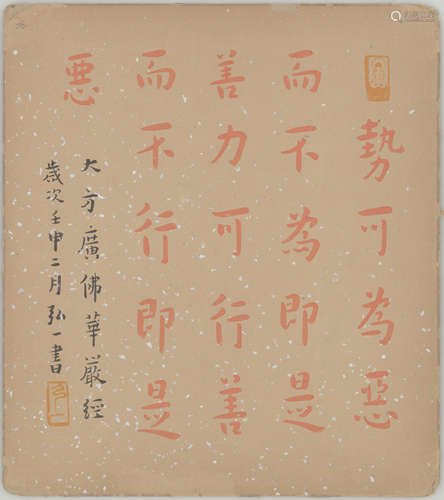 勢可為惡
而不為即是
善力可行善
而不行即是
惡
大方廣佛華嚴經
歲次壬申二月弘一書
弘一